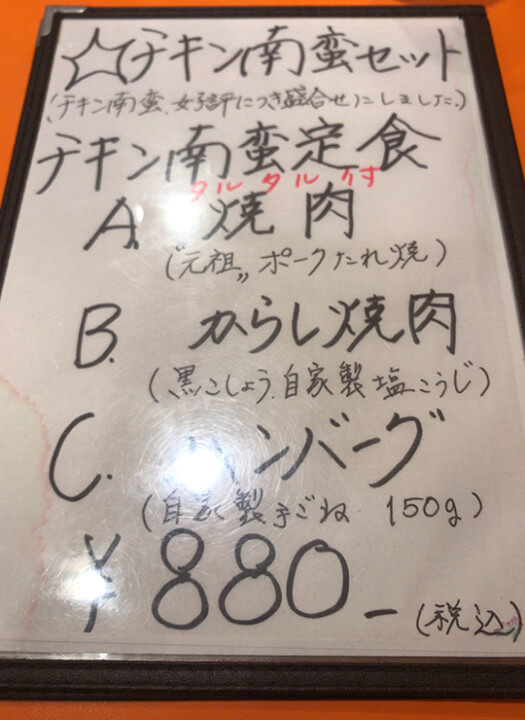 ☆チキン南蛮セット
(チキン南蛮、好評につき盛合せにしました。)
チキン南蛮定食
タルタル付
A. 焼肉
(〝元祖〟ポークたれ焼)
B. からし焼肉
(黒こしょう、自家製塩こうじ)
C. ハンバーグ
(自家製手ごね 150g)
¥880-(税込)